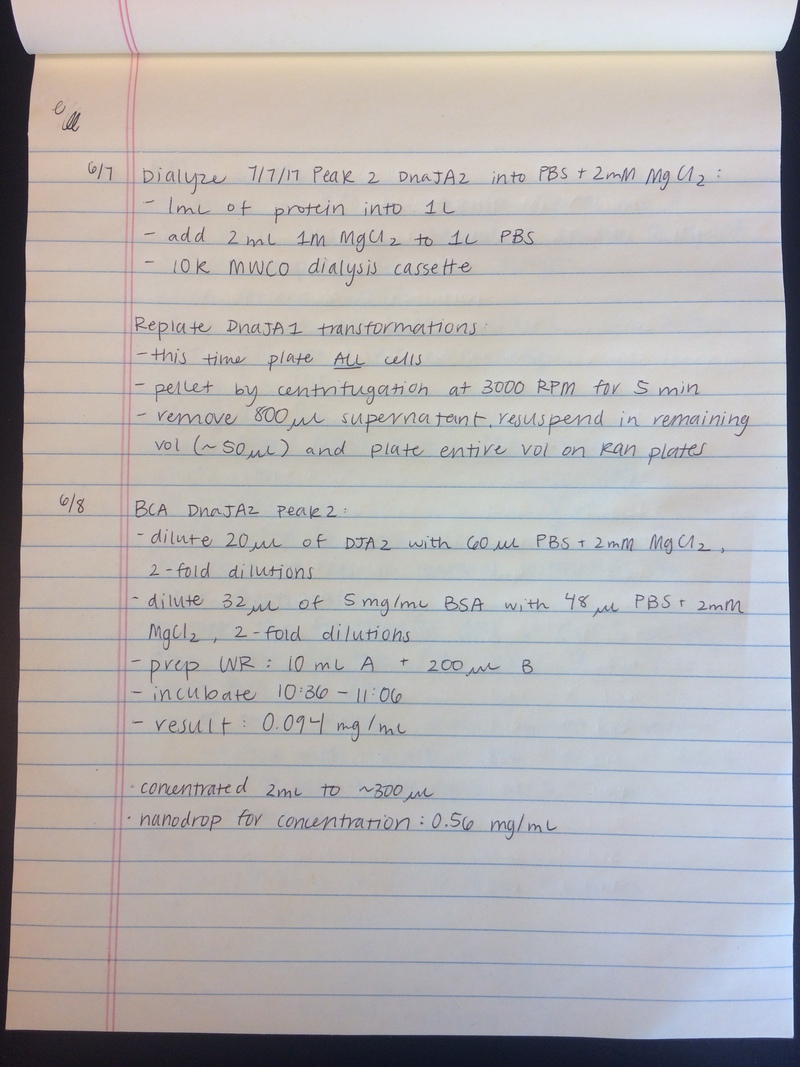 6/7 Dialyze 7/7/17 Peak 2 DnaJA2 into PBS + 2mM MgCl2:
- 1mL of protein into 1L
- add 2mL 1M MgCl2 to 1L PBS
- 10K MWCO dialysis cassette
Replate DnaJA1 transformations:
- this time plate ALL cells
- pellet by centrifugation at 3000 RPM for 5 min
- remove 800 µL supernatant, resuspend in remaining
vol (~50 µL) and plate entire vol on Kan plates
6/8 BCA DnaJA2 Peak 2:
- dilute 20 µL of DJA2 with 60 µL PBS + 2mM MgCl2,
2-fold dilutions
- dilute 32 µL of 5mg/mL BSA with 48 µL PBS + 2mM
MgCl2, 2-fold dilutions
- prep WR: 10 mL A + 200 µL B
- incubate 10:36 - 11:06
- result: 0.094 mg/mL
· concentrated 2mL to ~300 µL
· nanodrop for concentration: 0.56 mg/mL